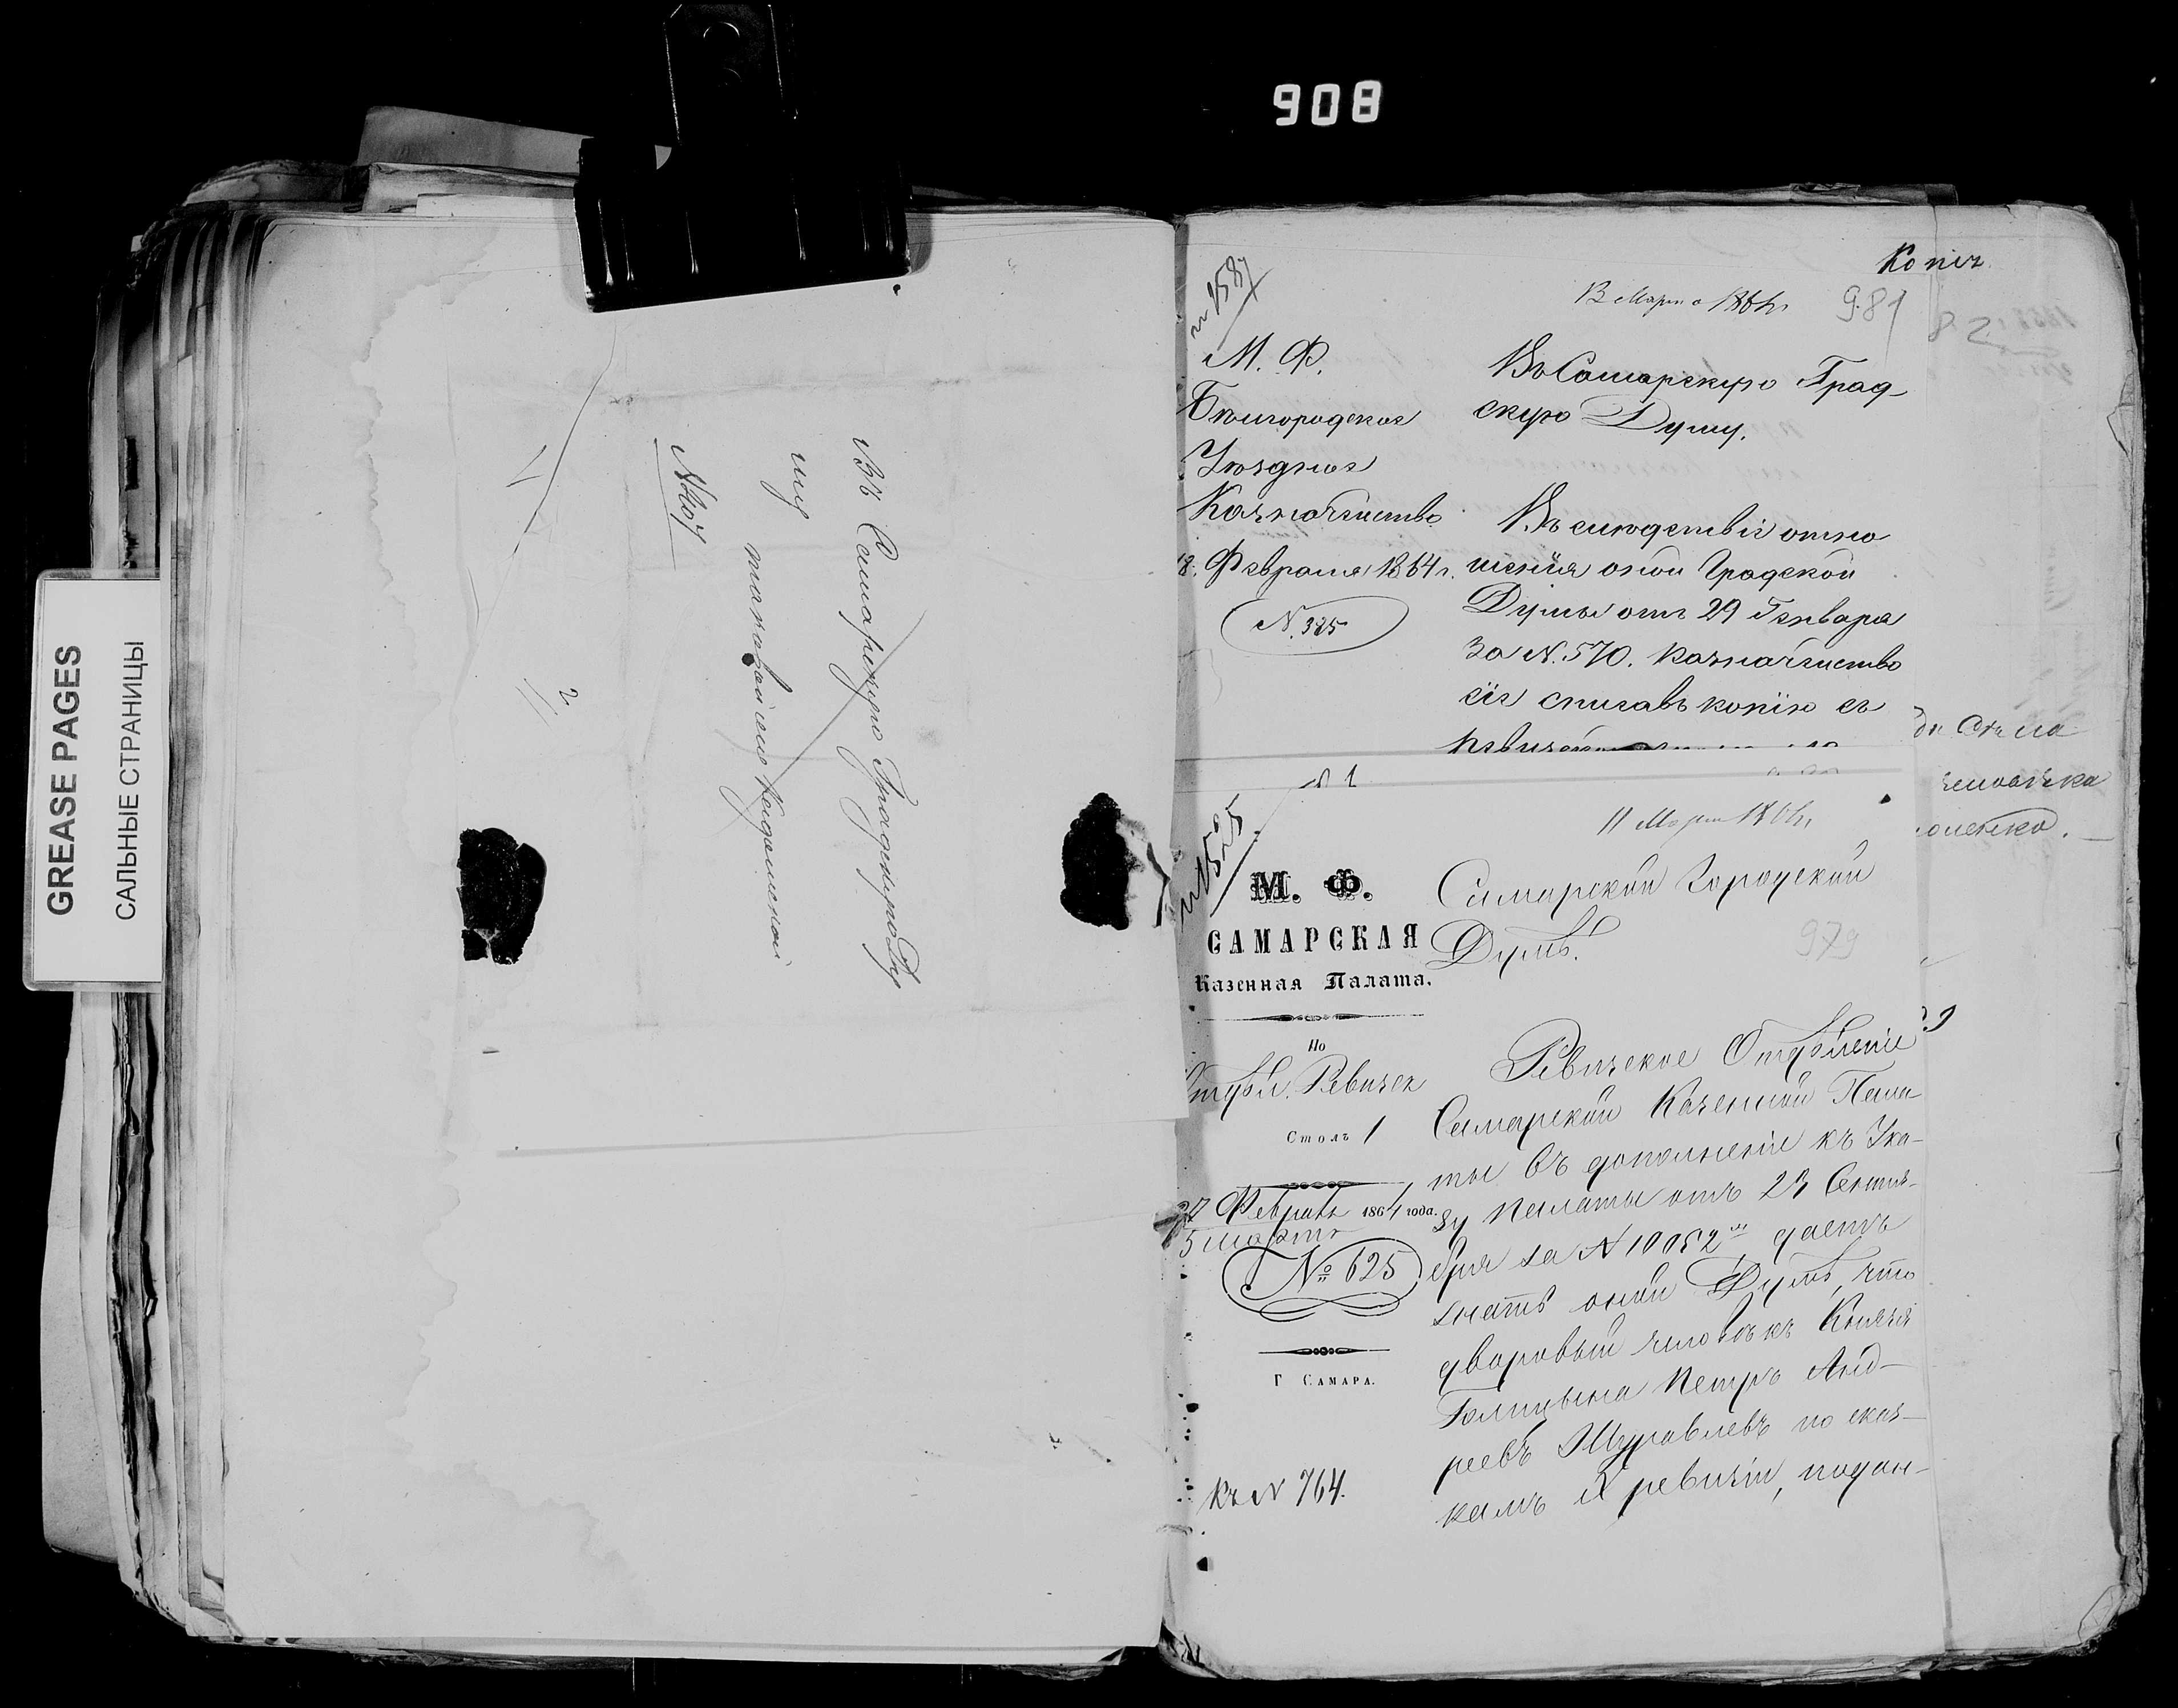 908
GREASE PAGES
САЛЬНЫЕ СТРАНИЦЫ
Въ Самарскую Градскую Ду
му
№ 407
Копія
13 Марта 1864 г.
981
82
М. Ф.
Бѣлгородское
Уѣздное
Казначейство
18 Февраля 1864 г.
№ 385
Въ Самарскую Град-
скую Думу.
Въ слѣдствіе отно
шенія оной Градской
Думы отъ 29 Генваря
за №. 570. Казначейство
сіе списавъ копію съ
11 Марта 1864 г.
М. Ф.
САМАРСКАЯ
Казенная Палата.
По
Отдѣл. Ревизск
Столъ 1
27 Февраля 1864 года.
5 Марта
№ 625
Г САМАРА.
Къ № 764.
Самарской Городской
Думѣ.
979
Ревизское Отдѣленіе
Самарской Казенной Пала-
ты въ дополненіе къ Ука-
зу Палаты отъ 23 Сентя-
бря за № 10052 даетъ
знать оной Думѣ, что
дворовый человѣкъ Князя
Голицына Петръ Анд-
реевъ Журавлевъ по сказ-
камъ X ревизіи, подан-